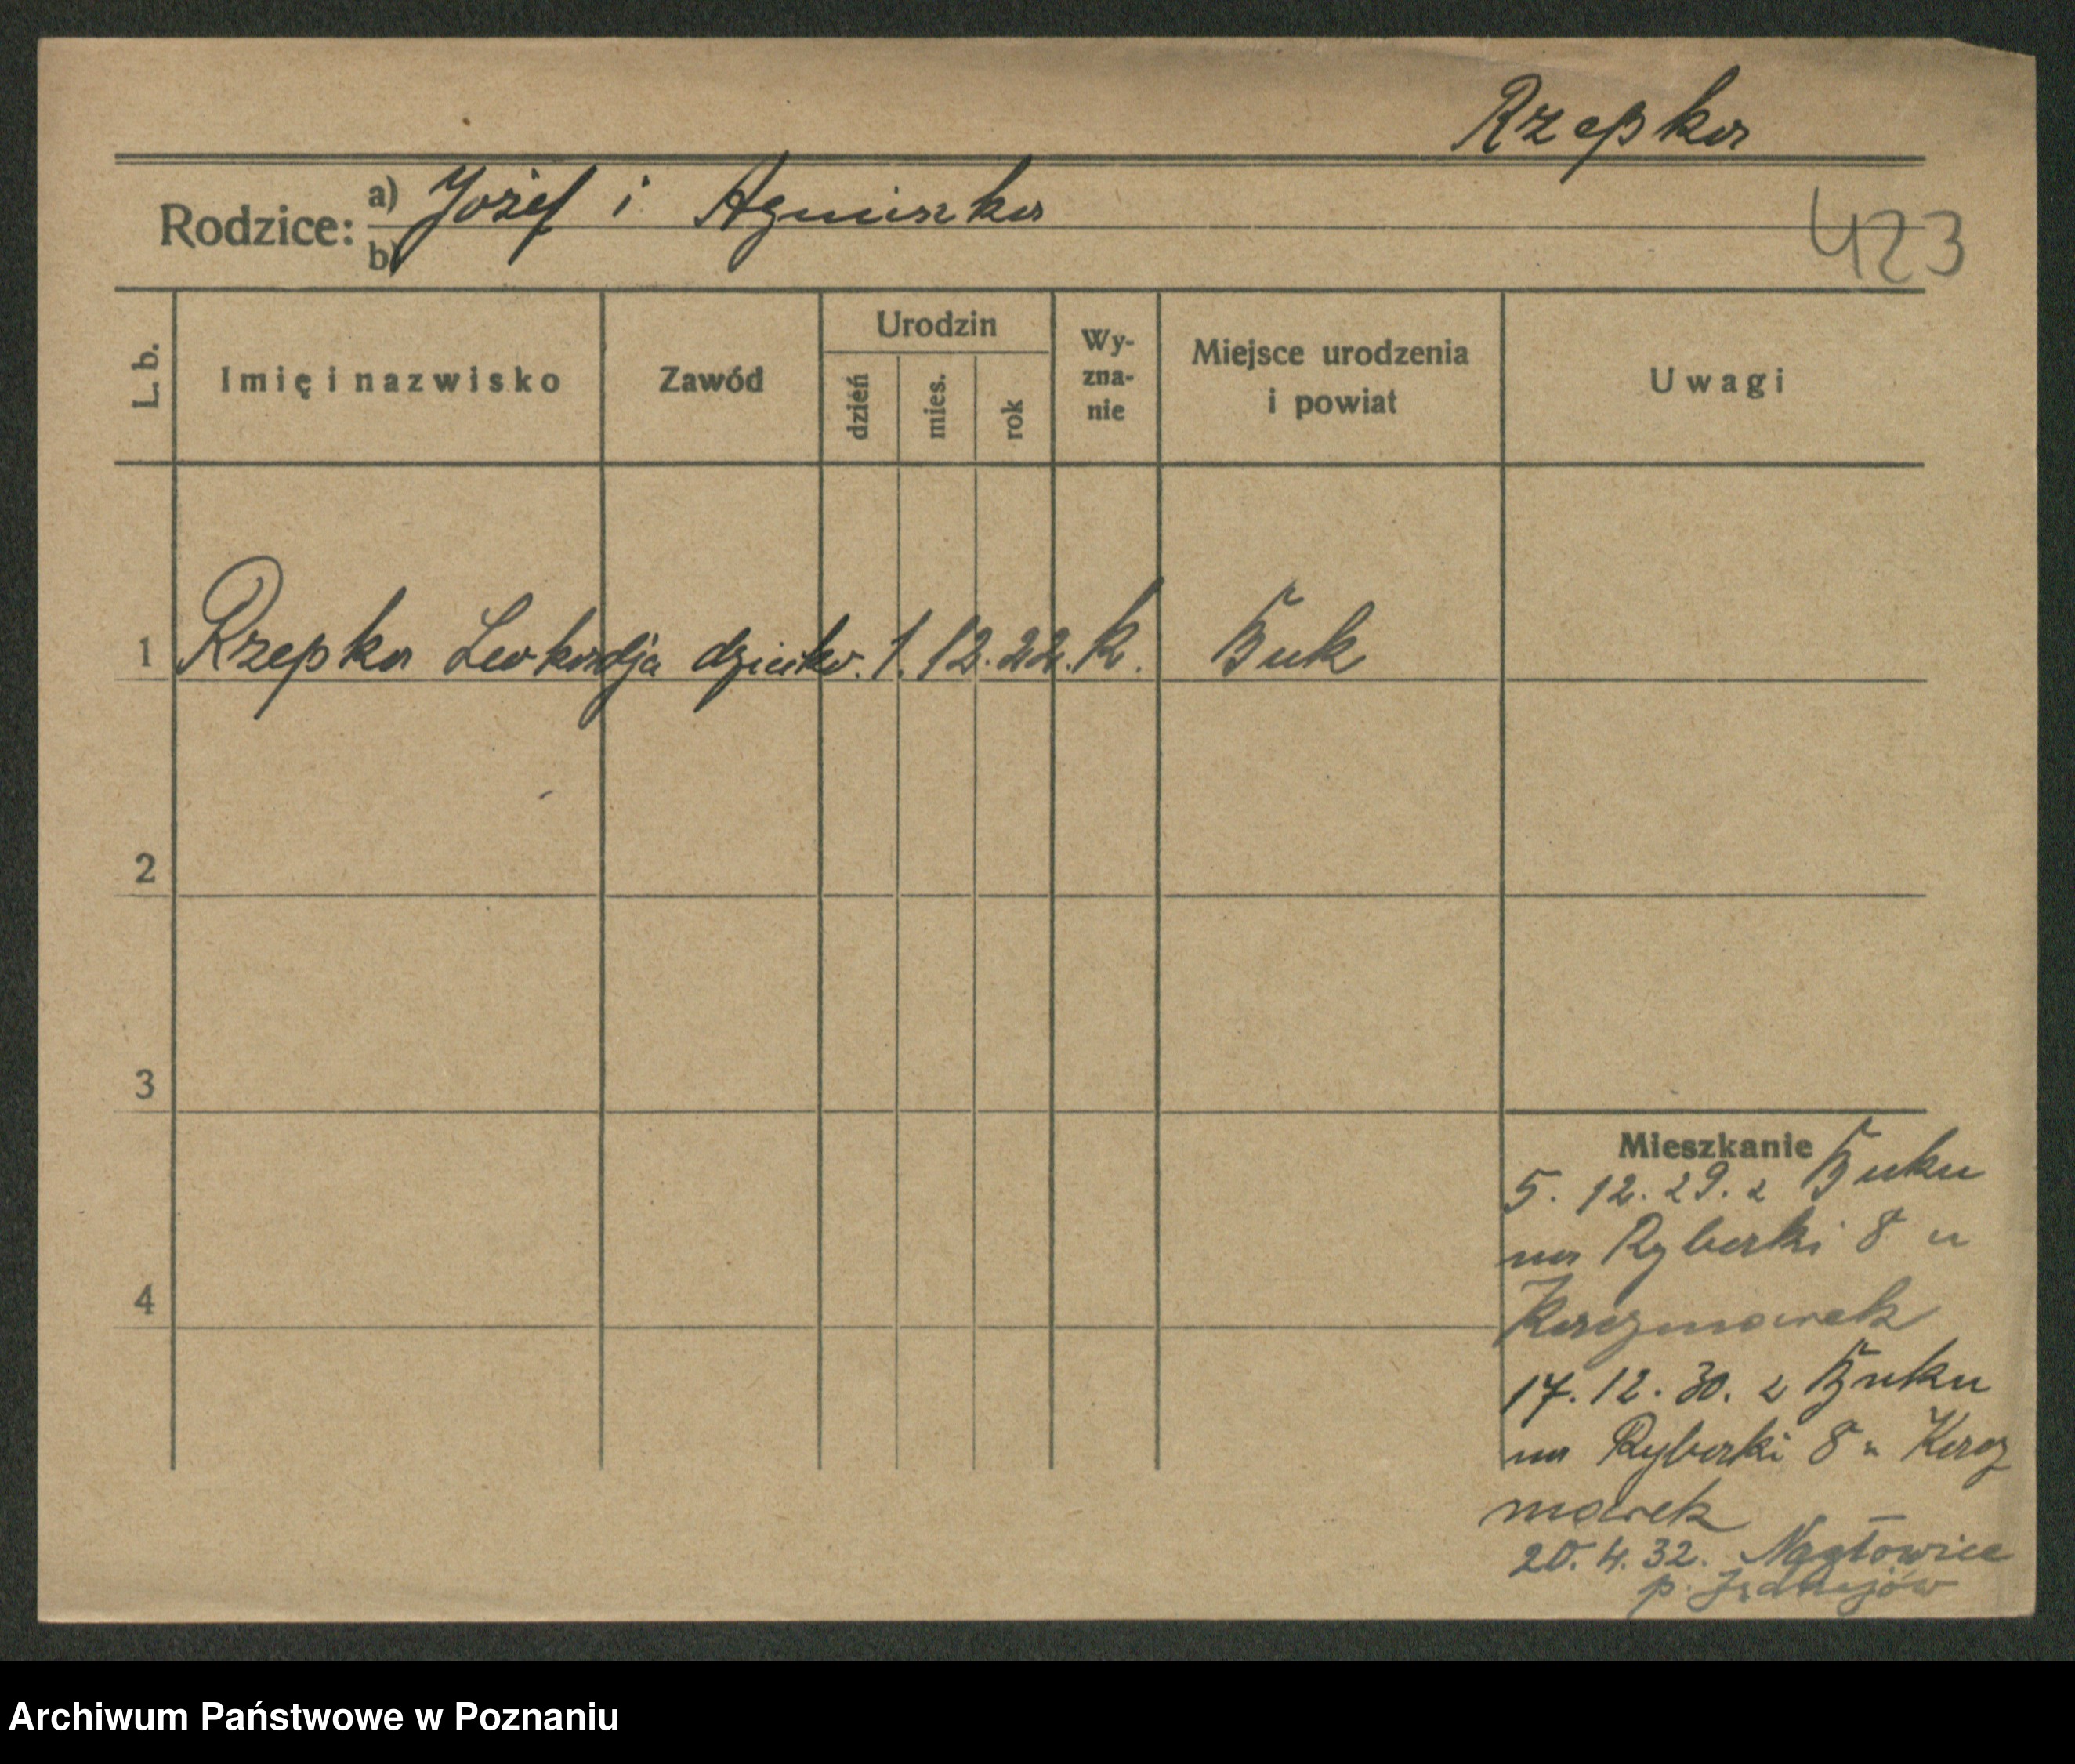 Rzepka
Rodzice: a) Józef i Agnieszka
b)
423
L. b.
Imię i nazwisko
Zawód
Urodzin
dzień
mies.
rok
Wy-
zna-
nie
Miejsce urodzenia
i powiat
Uwagi
1 Rzepka Leokardja dziecko. 1. 12. 22. k. Buk
2
3
4
Mieszkanie
5. 12. 29. z Buku
na Rybaki 8 u
Kaczmarek
17. 12. 30. z Buku
na Rybaki 8 u Kacz
marek
20. 4. 32. Nagłowice
p. Jędrzejów
Archiwum Państwowe w Poznaniu